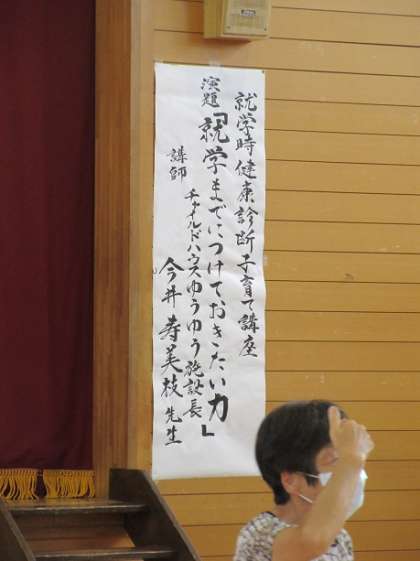 就学時健康診断子育て講座
演題「就学までにつけておきたい力」
講師 チャイルドハウスゆうゆう施設長
今井 寿美枝 先生